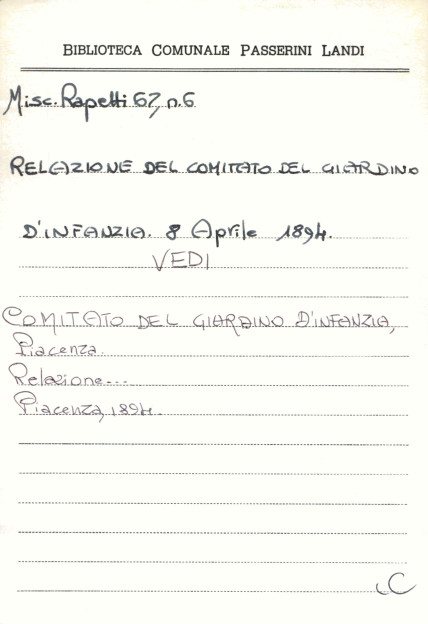 BIBLIOTECA COMUNALE PASSERINI LANDI
Misc. Rapetti 67, n. 6
RELAZIONE DEL COMITATO DEL GIARDINO
D'INFANZIA. 8 Aprile 1894.
VEDI
COMITATO DEL GIARDINO D'INFANZIA,
Piacenza.
Relazione...
Piacenza, 1894.
C